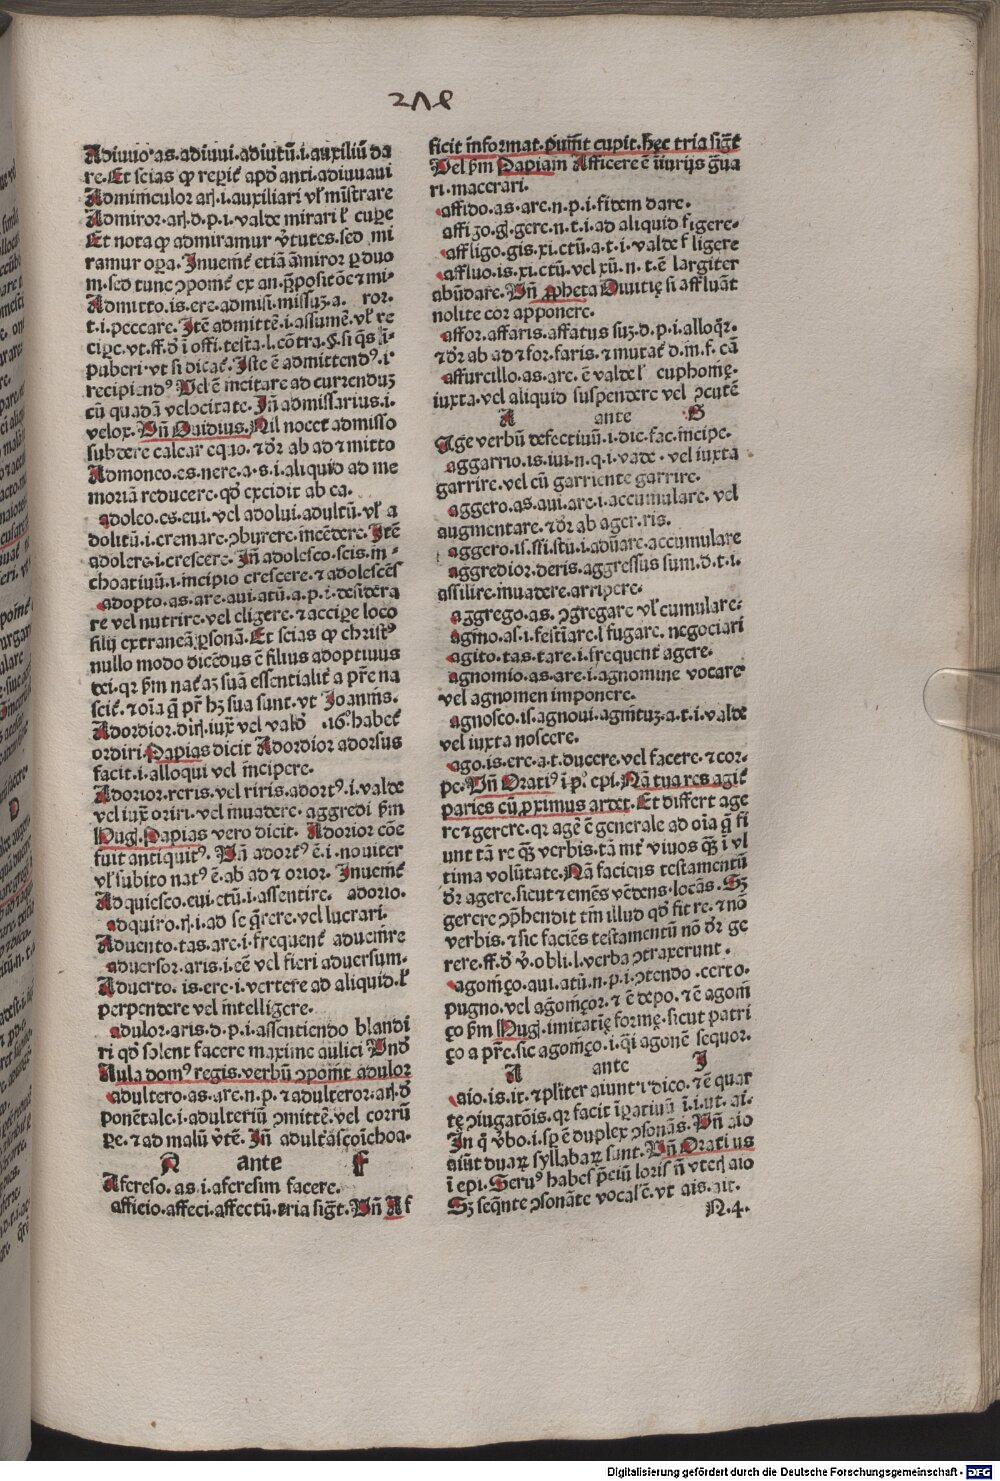 218
Adiuuo.as.adiuui.adiutū.i.auxiliū da
re.Et scias ꝙ reꝑit᷑ apd̄ anti.adiuuaui
Adminiculor aris.i.auxiliari vl̓ mīstrare
Admiror.aris.d.p.i.valde mirari l̓ cuꝑe
Et nota ꝙ admiramur v̓tutes.sed mi
ramur oꝑa.Inuenit᷑ etiā āmiror ꝑ duo
m.sed tunc ꝯponit᷑ ex an.p̄positōe ⁊ mi-
Admitto.is.ere.admisi.missuꝫ.a. ror.
t.i.peccare.Itē admittē.i.assumē.vl̓ re
ciꝑe.vt.ff.d̓ ī offi.testa.l.cōtra.§.si q̄s ī-
puberi.vt si dicat᷑.Iste ē admittendꝰ.i.
recipiendꝰ Vel ē incitare ad currenduꝫ
cū quadā velocitate.Iñ admissarius.i.
velox.Vñ Ouidius.Nil nocet admisso
subdere calcar equo.⁊ d̓r ab ad ⁊ mitto
Admoneo.es.nere.a.s.i.aliquid ad me
moriā reducere.qd̓ excidit ab ea.
adoleo.es.eui.vel adolui.adultū.vl̓ a
dolitū.i.cremare.ꝯburere.incēdere.Itē
adolere.i.crescere.Iñ adolesco.scis.in-
choatiuū.i.incipio crescere.⁊ adolescēs
adopto.as.are.aui.atū.a.p.i.desidera
re vel nutrire.vel eligere.⁊ acciꝑe loco
filij extraneā ꝑsonā.Et scias ꝙ christꝰ
nullo modo dicēdus ē filius adoptiuus
dei.qr ẜm nat᷑aꝫ suā essentialit᷑ a pr̄e na
scit᷑.⁊ oīa q̄ pr̄ hꝫ sua sunt.vt Joannis.
Adordior.diris.iux̄ vel valḋ .16.habet᷑
ordiri.Papias dicit Adordior adorsus
facit.i.alloqui vel incipere.
Adorior.reris.vel riris.adortꝰ.i.valde
vel iux̄ oriri.vel inuadere.aggredi ẜm
Hug.Papias vero dicit. Adorior cōe
fuit antiquitꝰ. Vñ adortꝰ ē.i.nouiter
vl̓ subito natꝰ ē.ab ad ⁊ orior. Inuenit᷑
Adquiesco.eui.etū.i.assentire. adorio.
adquiro.ris.i.ad se q̄rere.vel lucrari.
Aduento.tas.are.i.frequent᷑ aduenire
aduersor.aris.i.eē vel fieri aduersum.
Aduerto. is.ere.i.vertere ad aliquid.l̓
perpendere vel intelligere.
adulor.aris.d.p.i.assentiendo blandi
ri qd̓ solent facere maxime aulici Vnd̓
Aula domꝰ regis.verbū ꝯponit adulor
adultero.as.are.n.p.⁊ adulteror.aris.d̓
ponētale.i.adulteriū ꝯmittē.vel corrū
ꝑe.⁊ ad malū v̓tē. Iñ adult᷑ascoīchoa-
A ante F
Afereso. as.i.aferesim facere.
afficio.affeci.affectū.tria sigt̄.Vñ Af
ficit informat.punit cupit.hęc tria sigt̄
Vel ẜm Papiam Afficere ē iniurijs gua
ri.macerari.
affido.as.are.n.p.i.fidem dare.
affigo.gis.gere.n.t.i.ad aliquid figere.
affligo.gis.xi.ctū.a.t.i.valde fligere
affluo.is.xi.ctū.vel xū.n.t.ē largiter
abūdare.Vñ ꝓpheta Diuitię si affluāt
nolite cor apponere.
affor.affaris.affatus suꝫ.d.p.i.alloq̄r.
⁊ d̓r ab ad ⁊ for.faris.⁊ mutat᷑ d.in.f.cā
affurcillo.as.are.ē valde l̓ euphonię.
iuxta.vel aliquid suspendere vel ꝯcutē
A ante G
Age verbū defectiuū.i.dic.fac.incipe.
aggarrio.is.iui.n.q.i.vade.vel iuxta
garrire.vel cū garriente garrire.
aggero.as.aui.are.i.accumulare. vel
augmentare.⁊ d̓r ab ager.ris.
aggero.is.ssi.stū.i.aduāre.accumulare
aggredior.deris.aggressus sum.d.t.i.
assilire.inuadere.arripere.
aggrego.as.ꝯgregare vl̓ cumulare.
agino.as.i.festīare.l̓ fugare. negociari
agito.tas.tare.i.frequent᷑ agere.
agnomio.as.are.i.agnomine vocare
vel agnomen imponere.
agnosco.is.agnoui.agnituꝫ.a.t.i.valde
vel iuxta noscere.
ago.is.ere.a.t.ducere.vel facere.⁊ cor-
pe.Vñ Oratiꝰ ī p̊.epi.Nā tua res agit᷑
paries cū ꝓximus ardet.Et differt age
re ⁊ gerere.qr agē ē generale ad oīa q̄ fi
unt tā re qꝫ verbis.tā int̄ viuos qꝫ ī vl
tima volūtate.Nā faciens testamentū
d̓r agere.sicut ⁊ emēs vēdens.locās.Sꝫ
gerere ꝯp̄hendit tm̄ illud qd̓ fit re.⁊ nō
verbis.⁊ sic faciēs testamentū nō d̓r ge
rere.ff.d̓ v̓.obli.l.verba ꝯtraxerunt.
agoniço.aui.atū.n.p.i.ꝯtendo.certo.
pugno.vel agōniçor.⁊ ē depo.⁊ ē agoni
ço ẜm Hug.imitatię formę.sicut patri
ço a pr̄e.sic agoniço.i.qi agonē sequor.
A ante I
aio.is.it.⁊ pl̓iter aiunt.i.dico.⁊ ē quar
tę ꝯiugatōis.qr facit īꝑatiuū ī.i.ut.ai.
In q̄ v̓bo.i.sꝑ ē duplex ꝯsonās.Vñ aio
aiūt duaꝝ syllabaꝝ sunt.Vñ Oratius
ī epi.Seruꝰ habes p̄ciū loris ñ vteris aio
Sꝫ seq̄nte ꝯsonāte vocal̓ ē.vt ais.ait.
N.4.
Digitalisierung gefördert durch die Deutsche Forschungsgemeinschaft - DFG